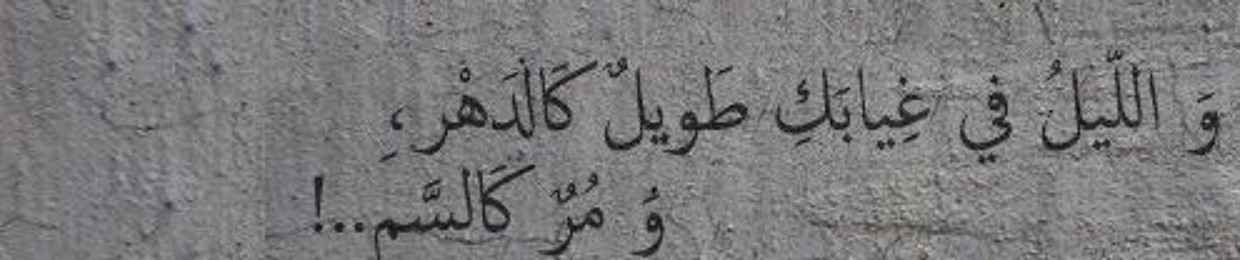 وَ اللّيلُ في غِيابَكِ طَويلٌ كَالدَهْرِ،
وُ مُرٌ كَالسَّم...!